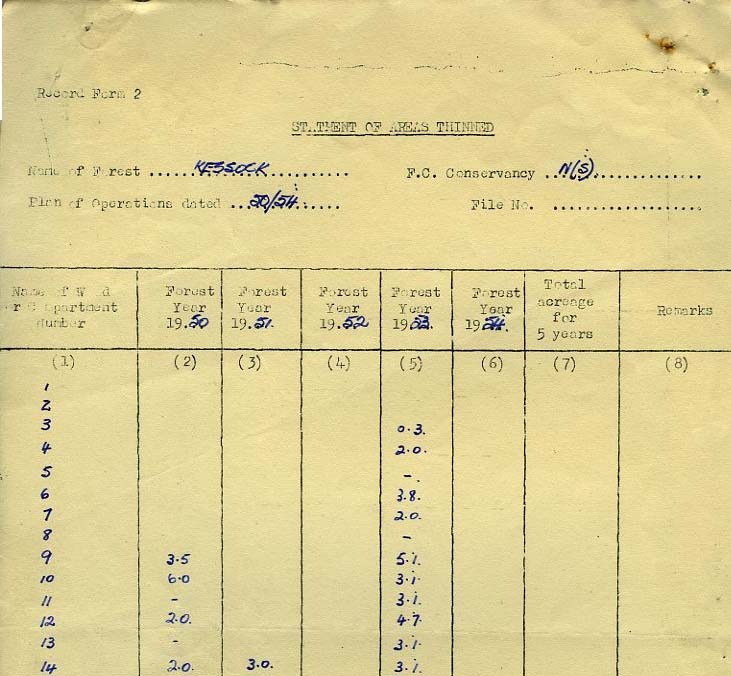 Record Form 2
STATMENT OF AREAS THINNED
Name of Forest ....KESSOCK.... F.C. Conservancy ..N(S)....
Plan of Operations dated ...50/54...... File No. ....................
Name of W d or C mpartment Number | Forest Year 19.50 | Forest Year 19.51. | Forest Year 19.52 | Forest Year 1953. | Forest Year 1954. | Total acreage for 5 years | Remarks
(1) (2) (3) (4) (5) (6) (7) (8)
1
2
3 0.3.
4 2.0.
5 -.
6 3.8.
7 2.0.
8 -
9 3.5 5.1.
10 6.0 3.1.
11 - 3.1.
12 2.0. 4.7.
13 - 3.1.
14 2.0. 3.0. 3.1.